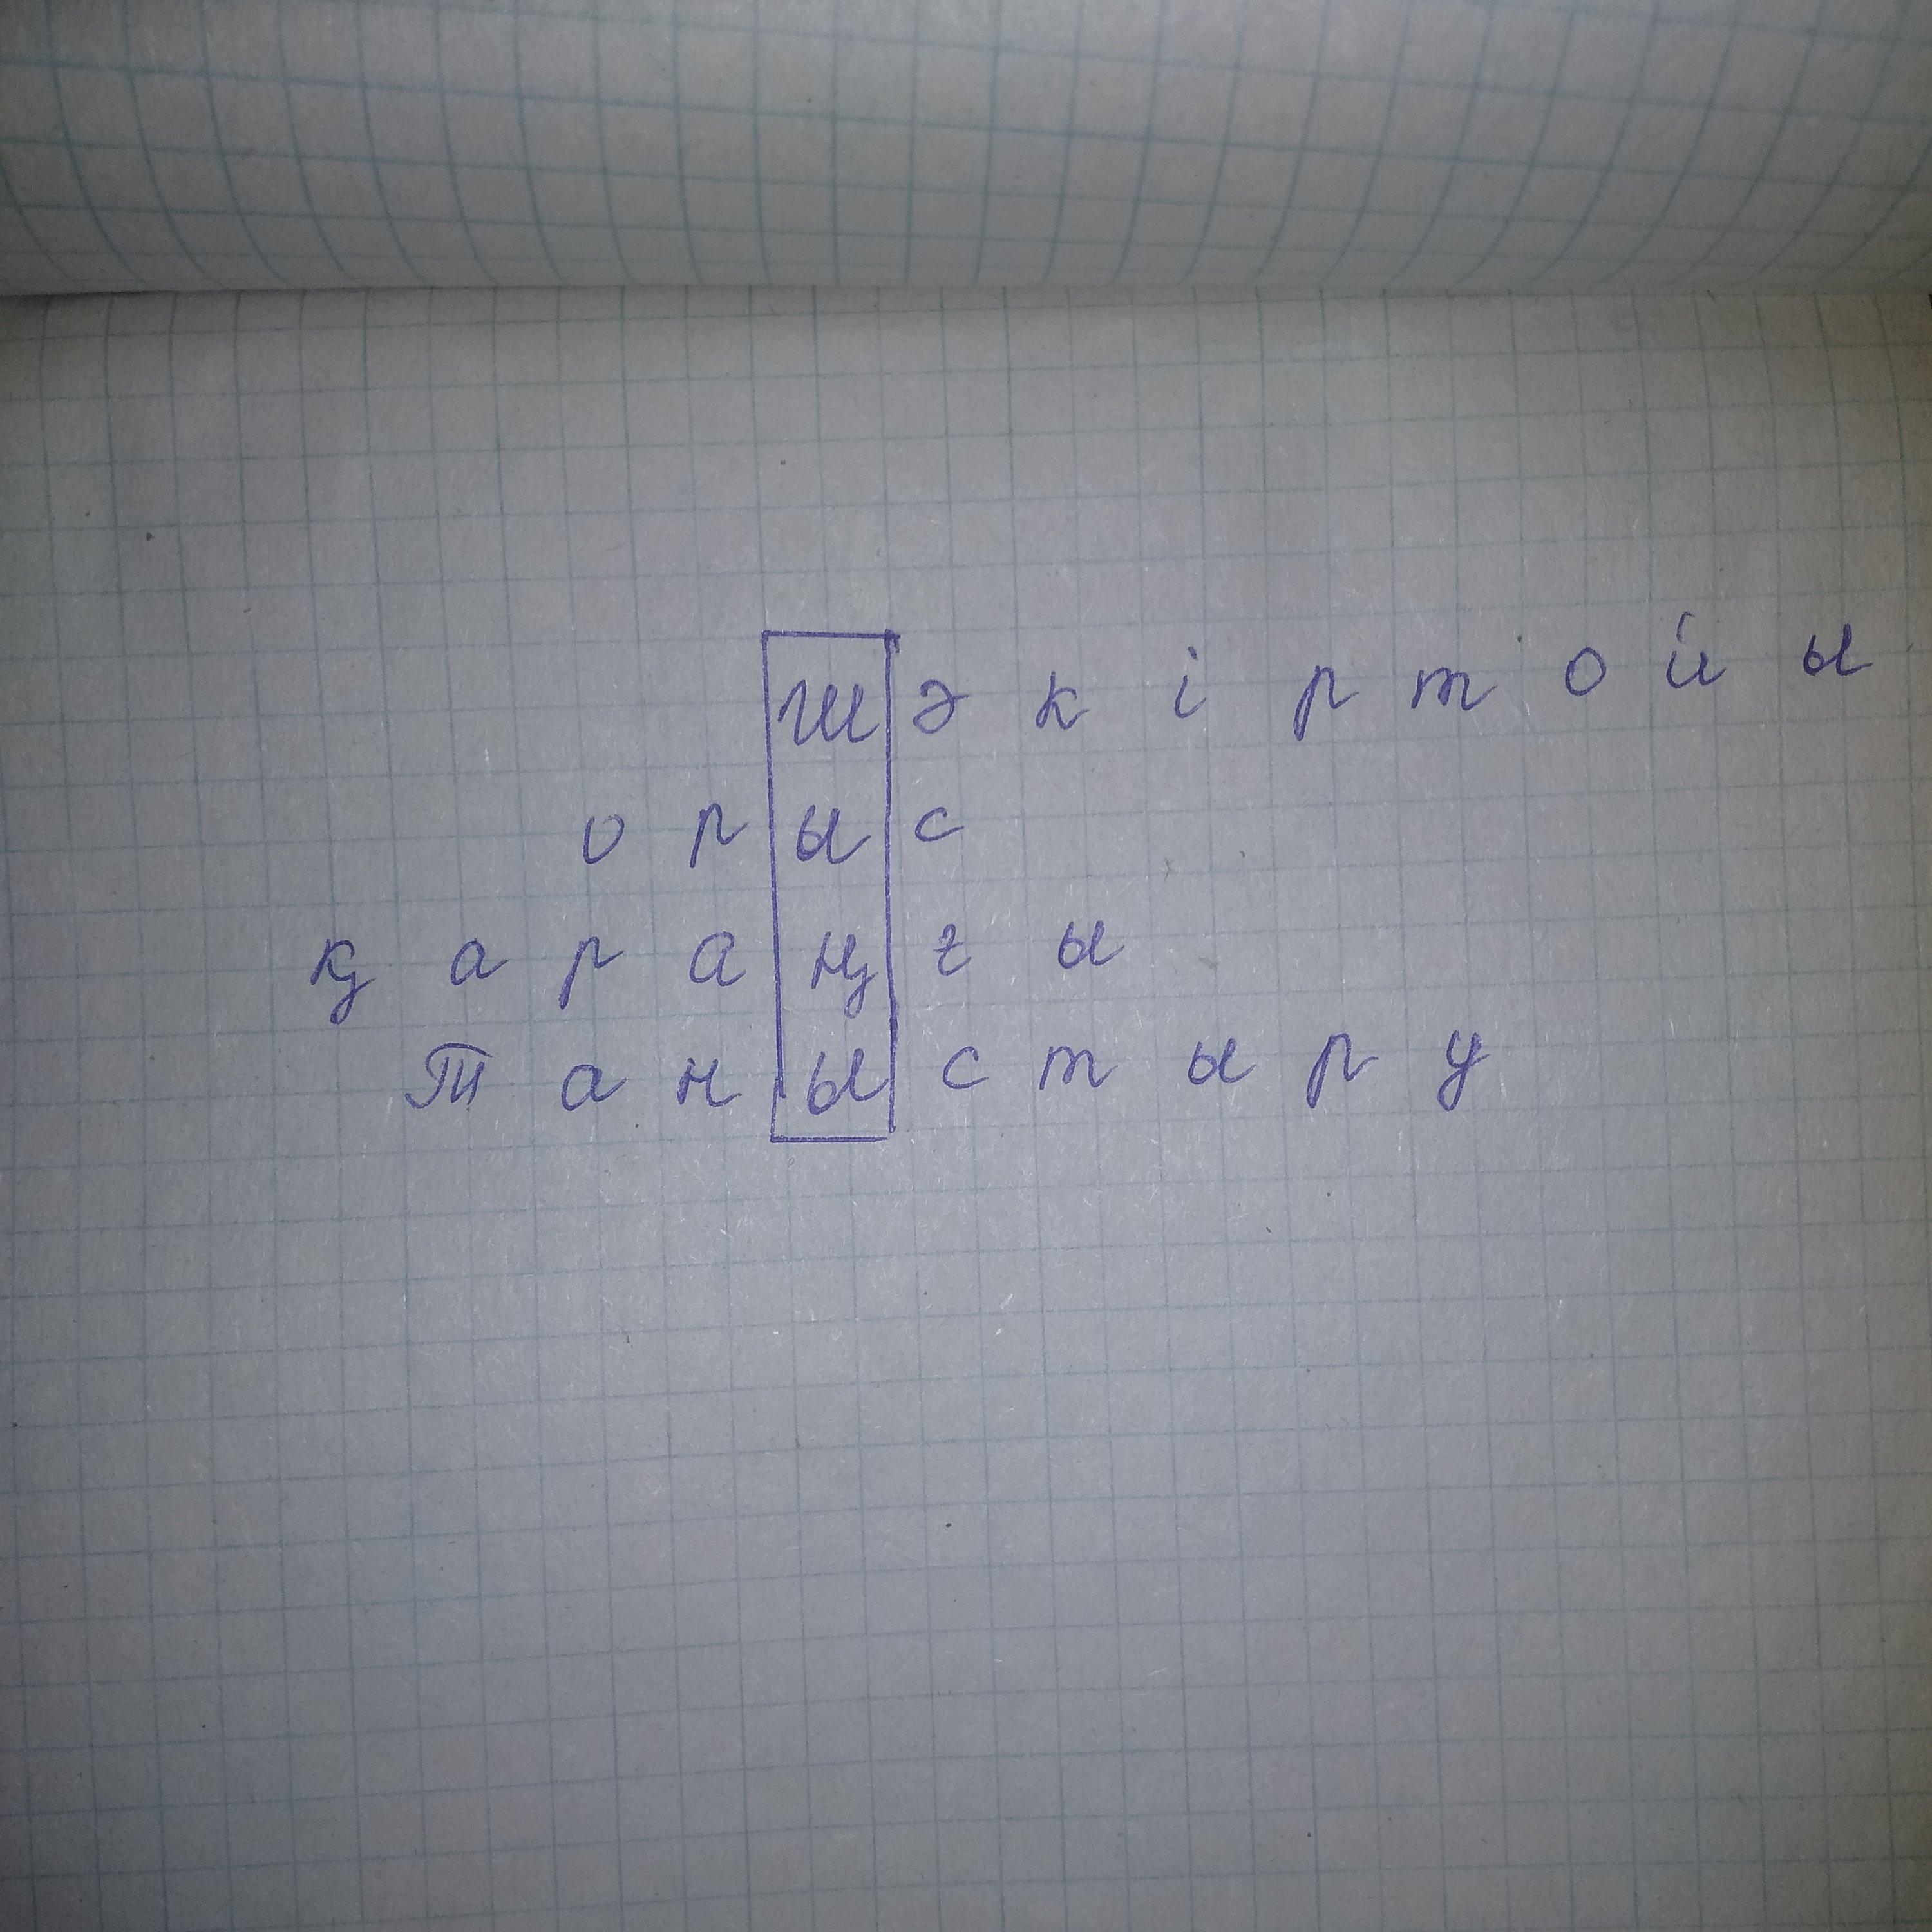 ш ә к і р т о й ы
о р ы с
қ а р а ң г ы
Т а н ы с т ы р у